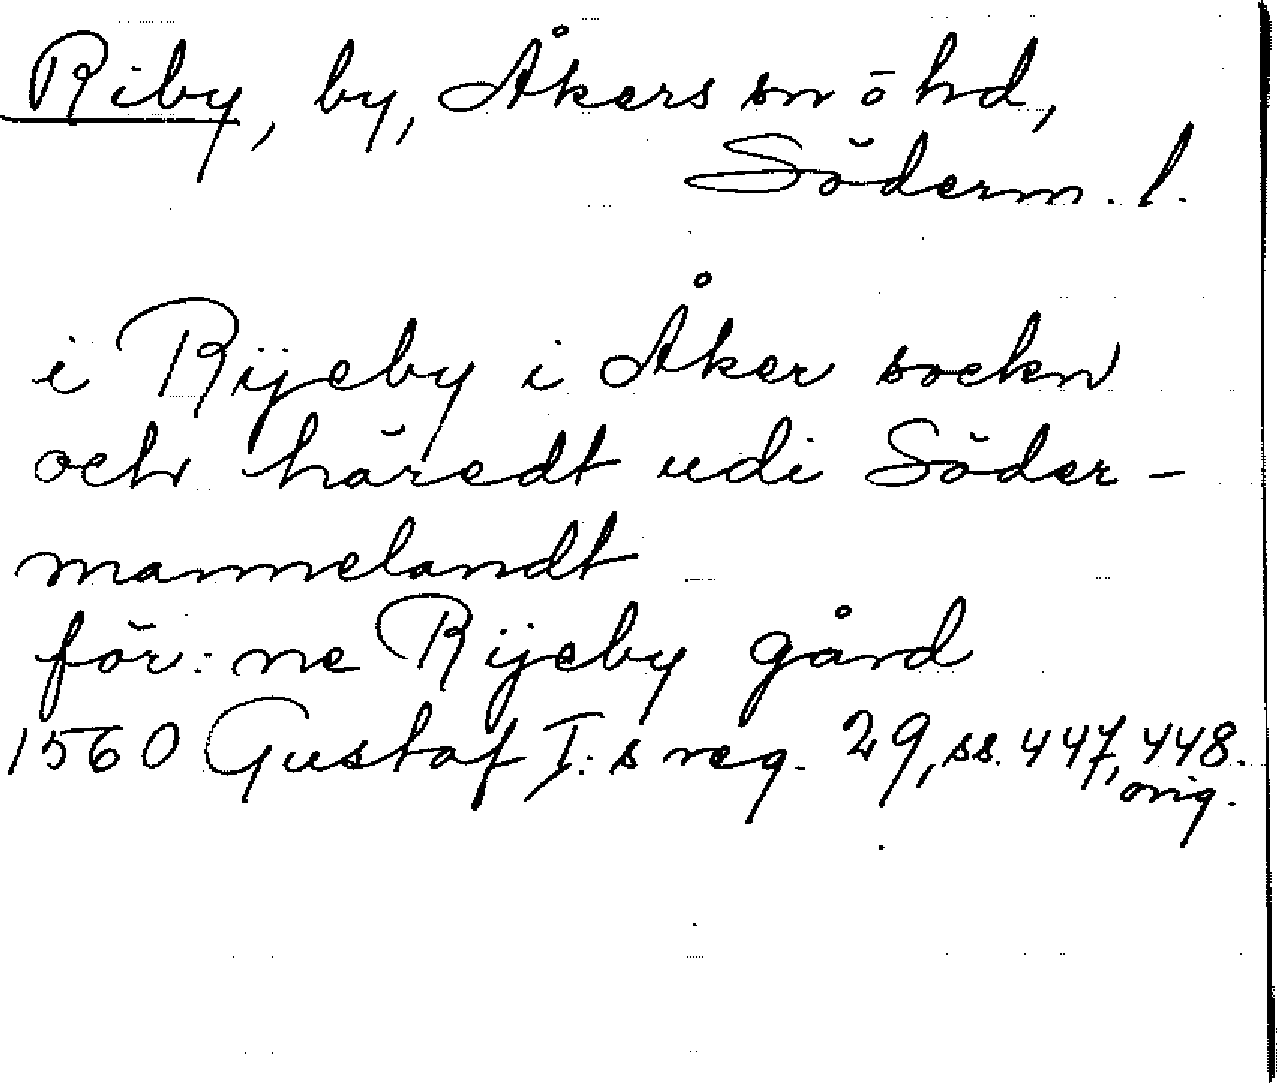 Riby, by, Åkers sn ö hd,
Söderm. l.
i Rijeby i Åker sockn
och häredt udi Söder-
mannelandt
för:ne Rijeby gård
1560 Gustaf I:s reg. 29, ss. 447, 448.
orig.